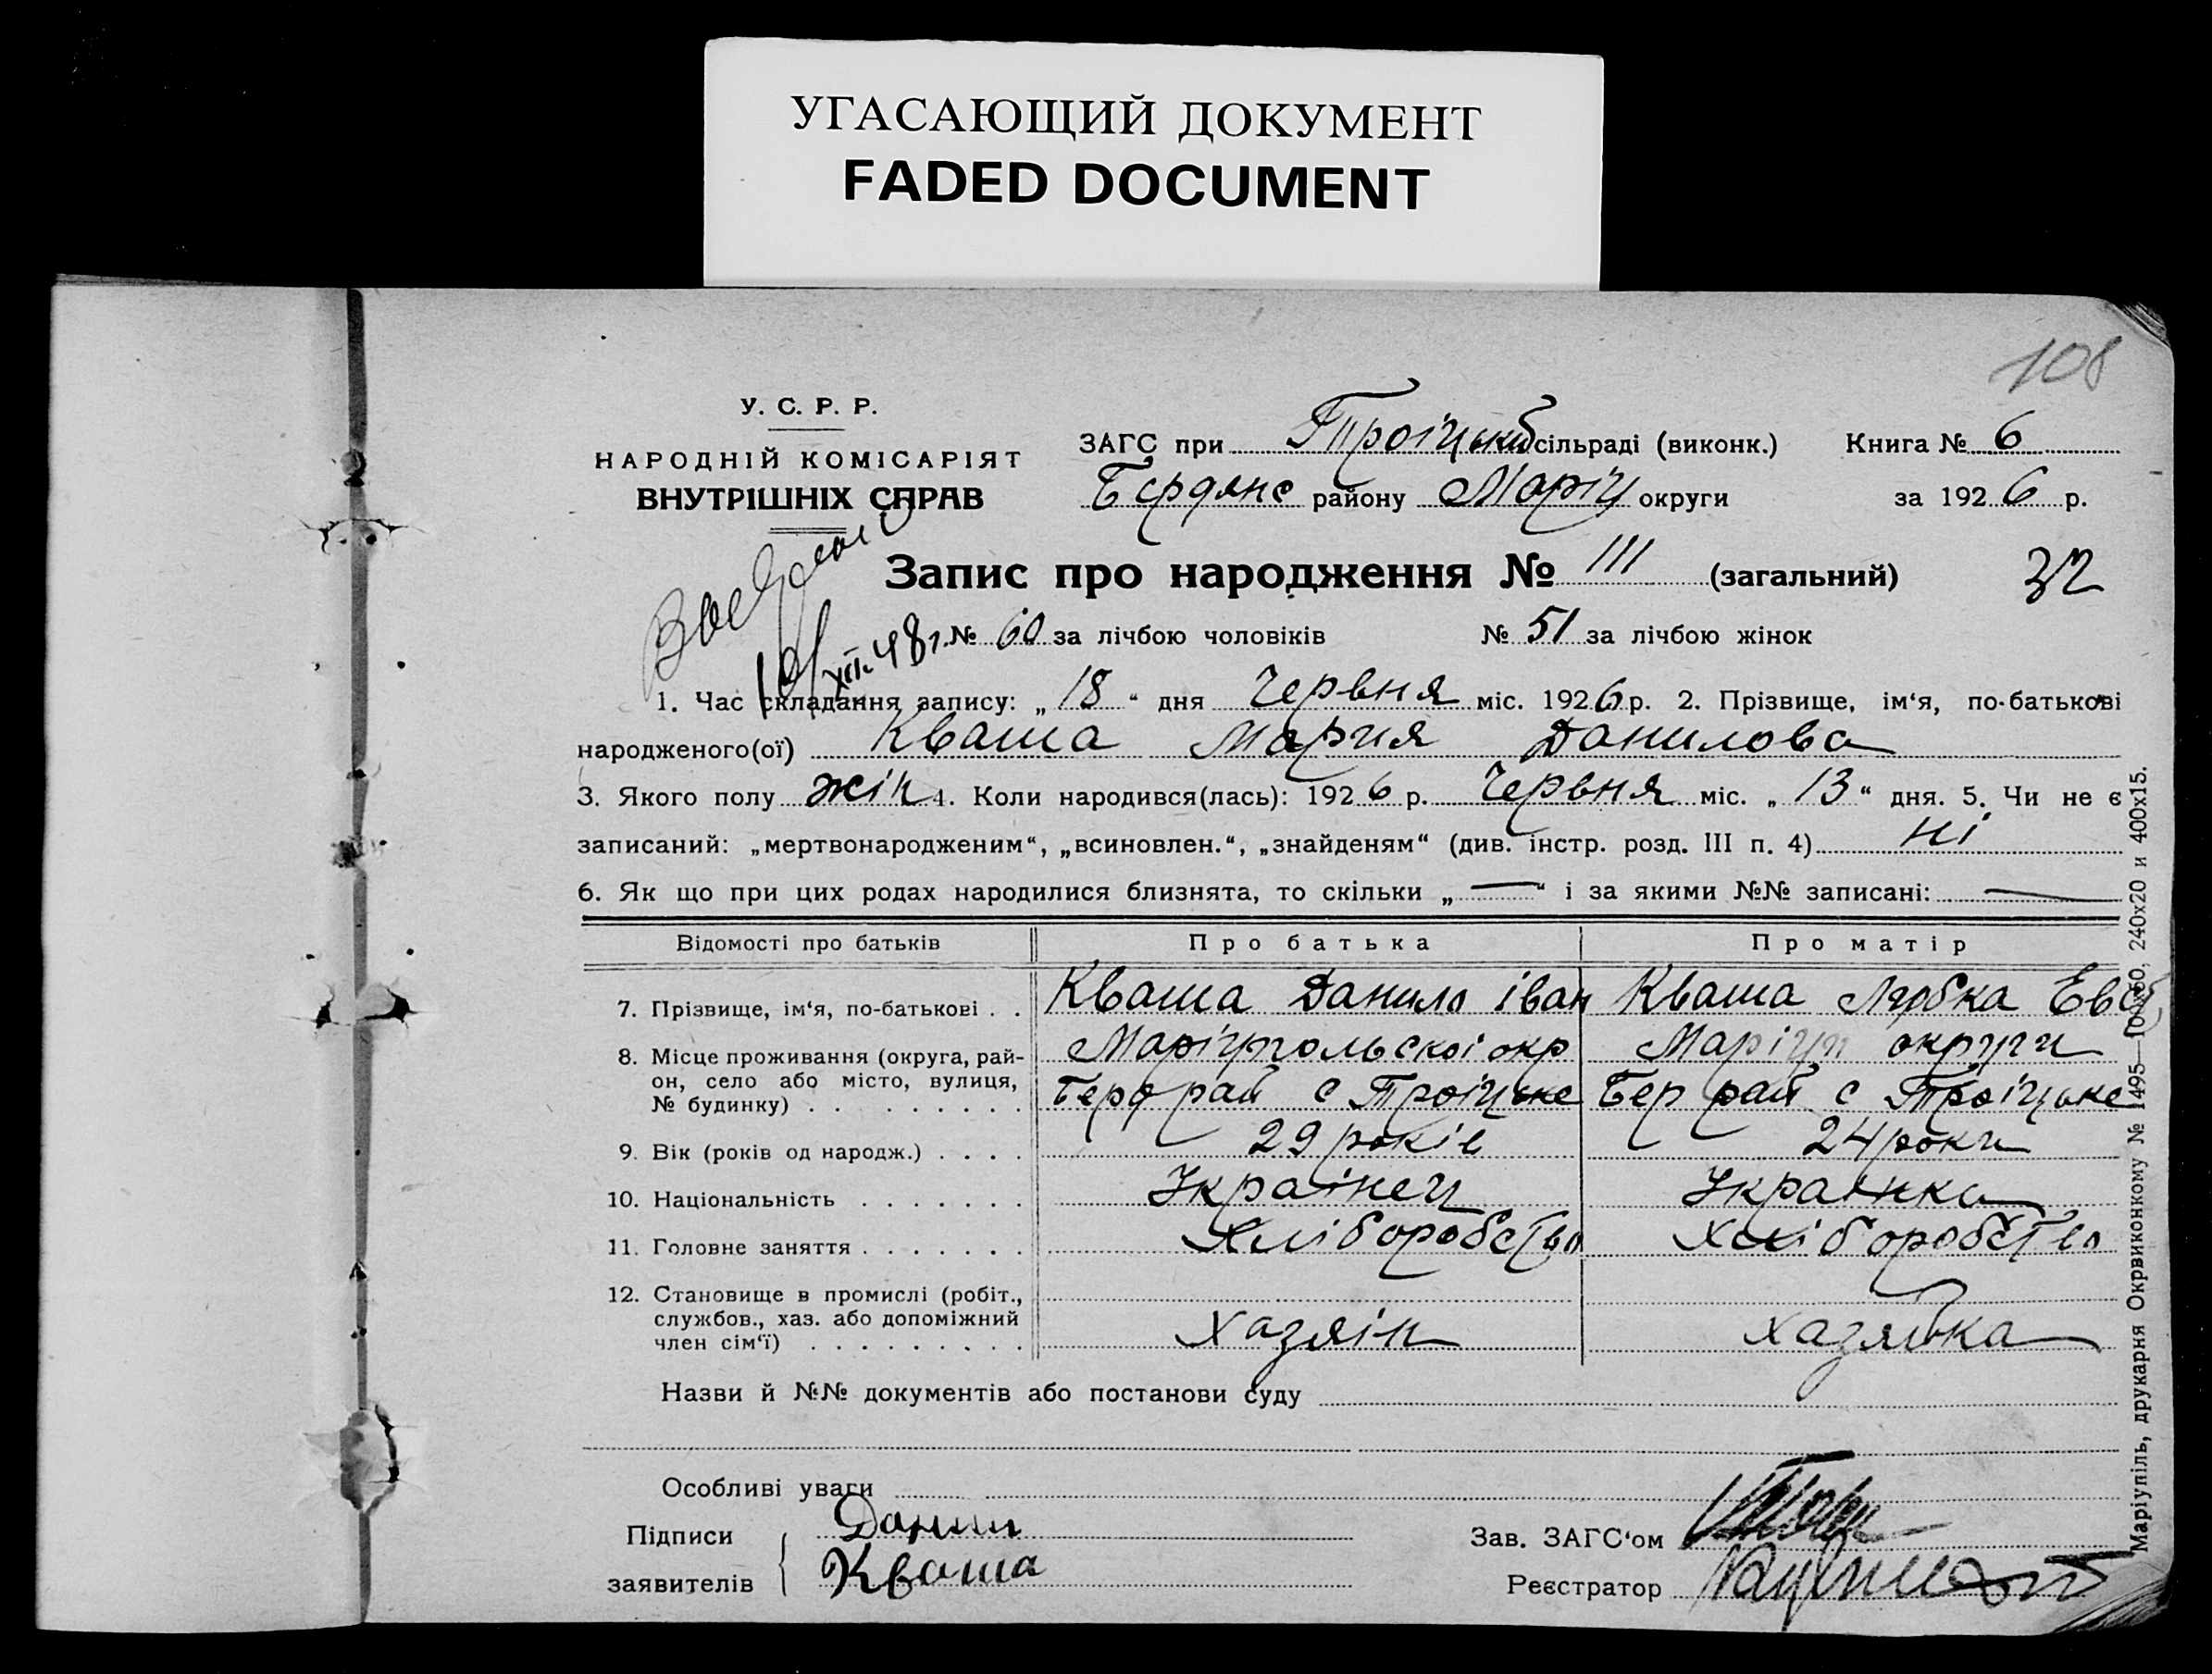 УГАСАЮЩИЙ ДОКУМЕНТ
FADED DOCUMENT
108
У. С. Р. Р.
НАРОДНІЙ КОМІСАРІЯТ
ВНУТРІШНІХ СПРАВ
ЗАГС при Троіцькій сільраді (виконк.) Книга № 6
Бердянс району Маріу округи за 1926 р.
Запис про народження № 111 (загальний) 32
XII.48г. № 60 за лічбою чоловіків № 51 за лічбою жінок
1. Час складання запису: „18“ дня Червня міс. 1926 р. 2. Прізвище, ім‘я, по-батькові
народженого(ої) Кваша Мария Данилова
3. Якого полу жін 4. Коли народився(лась): 1926 р. Червня міс. „13“ дня. 5. Чи не є
записаний: „мертвонародженим“, „всиновлен.“, „знайденям“ (див. інстр. розд. III п. 4) Ні
6. Як що при цих родах народилися близнята, то скільки „—“ і за якими №№ записані: —
Відомості про батьків Про батька Про матір
7. Прізвище, ім‘я, по-батькові . . Кваша Данило іван Кваша Евс
8. Місце проживання (округа, рай- Маріупольскоі окр Маріуп округи
он, село або місто, вулиця, Берд рай с Троіцьке Бер рай с Троіцьке
№ будинку) . . . . . . . . .
9. Вік (років од народж.) . . . . 29 років 24 роки
10. Національність . . . . . . . Украінец Украінка
11. Головне заняття . . . . . . . Хліборобство Хліборобство
12. Становище в промислі (робіт.,
службов., хаз. або допоміжний
член сім‘ї) . . . . . . . . . Хазяін Хазяйка
Назви й №№ документів або постанови суду
Особливі уваги
Підписи Данил
заявителів Кваша
Зав. ЗАГС‘ом
Реєстратор
Маріупіль, друкарня Окрвиконкому № 1495—100х60, 240х20 и 400х15.